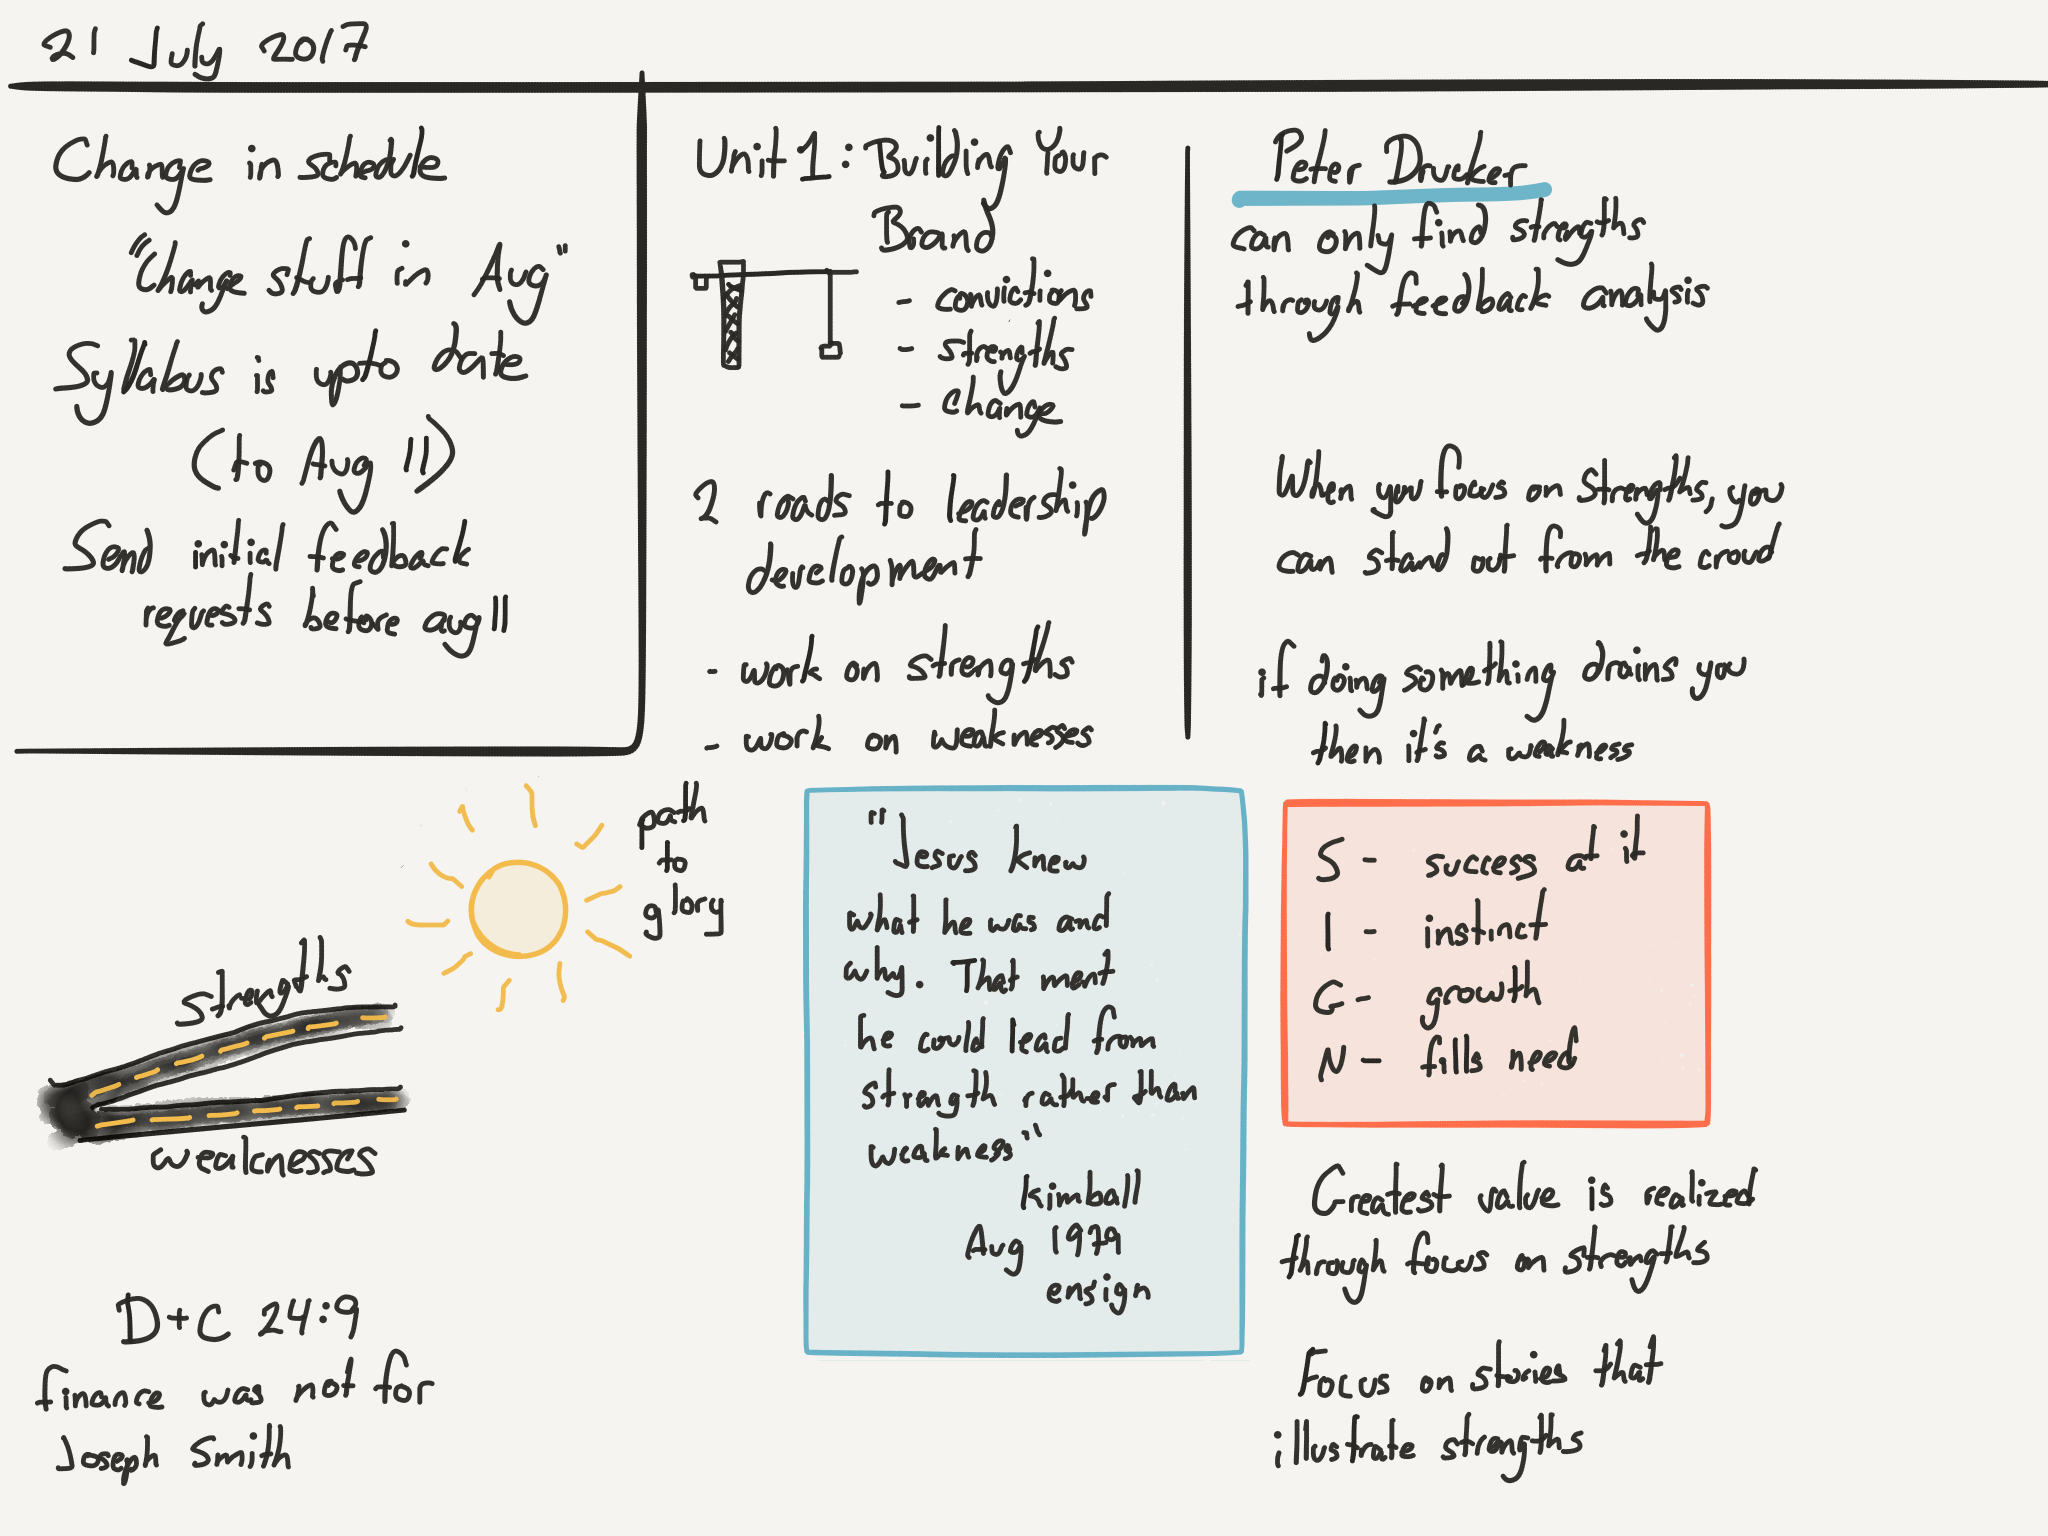 21 July 2017
Change in schedule
"Change stuff in Aug"
Syllabus is upto date
(to Aug 11)
Send initial feedback
requests before aug 11
Unit 1: Building Your
Brand
- convictions
- strengths
- change
2 roads to leadership
development
- work on strengths
- work on weaknesses
Peter Drucker
can only find strengths
through feedback analysis
When you focus on strengths, you
can stand out from the croud
if doing something drains you
then it's a weakness
path
to
glory
strengths
weaknesses
D+C 24:9
finance was not for
Joseph Smith
"Jesus knew
what he was and
why. That ment
he could lead from
strength rather than
weakness"
kimball
Aug 1979
ensign
S - success at it
I - instinct
G - growth
N - fills need
Greatest value is realized
through focus on strengths
Focus on stories that
illustrate strengths